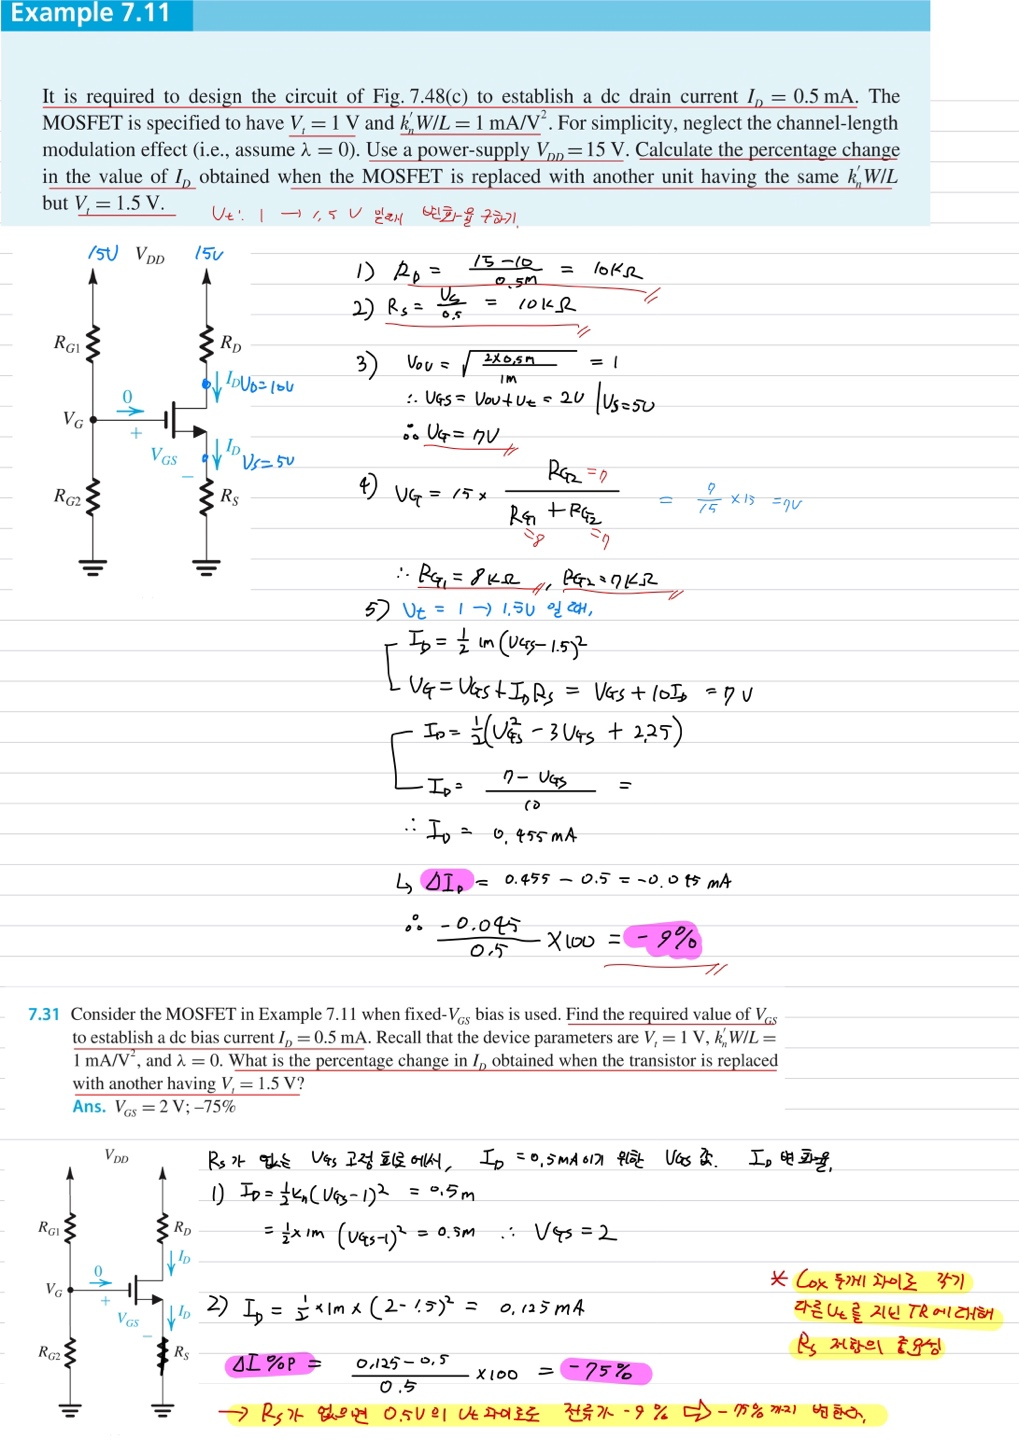 Example 7.11
It is required to design the circuit of Fig. 7.48(c) to establish a dc drain current I_D = 0.5 mA. The
MOSFET is specified to have V_t = 1 V and k'_n W/L = 1 mA/V². For simplicity, neglect the channel-length
modulation effect (i.e., assume λ = 0). Use a power-supply V_DD = 15 V. Calculate the percentage change
in the value of I_D obtained when the MOSFET is replaced with another unit having the same k'_n W/L
but V_t = 1.5 V.
Vt: 1 → 1.5 V 일때 변화율 구하기.
15V V_DD 15V
R_G1
R_D
I_D V_D=10V
0
V_G
+
V_GS
−
I_D
V_S=5V
R_G2
R_S
1) R_D = (15−10)/0.5m = 10kΩ
2) R_S = V_S/0.5 = 10kΩ
3) V_OV = √(2×0.5m/1m) = 1
∴ V_GS = V_OV + V_t = 2V | V_S=5V
∴ V_G = 7V
4) V_G = 15 × R_G2 =7 / (R_G1 =8 + R_G2 =7) = 7/15 × 15 = 7V
∴ R_G1 = 8kΩ, R_G2 = 7kΩ
5) V_t = 1 → 1.5V 일 때,
I_D = 1/2 1m (V_GS − 1.5)²
V_G = V_GS + I_D R_S = V_GS + 10I_D = 7V
I_D = 1/2 (V_GS² − 3V_GS + 2.25)
I_D = (7 − V_GS)/10 =
∴ I_D = 0.455 mA
↳ ΔI_D = 0.455 − 0.5 = −0.045 mA
∴ −0.045/0.5 × 100 = −9%
7.31 Consider the MOSFET in Example 7.11 when fixed-V_GS bias is used. Find the required value of V_GS
to establish a dc bias current I_D = 0.5 mA. Recall that the device parameters are V_t = 1 V, k'_n W/L =
1 mA/V², and λ = 0. What is the percentage change in I_D obtained when the transistor is replaced
with another having V_t = 1.5 V?
Ans. V_GS = 2 V; –75%
V_DD
R_G1
R_D
I_D
0
V_G
+
V_GS
−
I_D
R_G2
R_S
R_S가 없는 V_GS 고정 회로에서, I_D = 0.5mA이기 위한 V_GS 값. I_D 변화율.
1) I_D = 1/2 k_n (V_GS − 1)² = 0.5m
= 1/2 × 1m (V_GS − 1)² = 0.5m ∴ V_GS = 2
2) I_D = 1/2 × 1m × (2 − 1.5)² = 0.125mA
ΔI%P = (0.125 − 0.5)/0.5 × 100 = −75%
* Cox 두께 차이로 각기
다른 Vt를 지닌 TR에 대해
Rs 저항의 중요성
→ Rs가 없으면 0.5V의 Vt 차이로도 전류가 −9% ⇨ −75%까지 변한다.